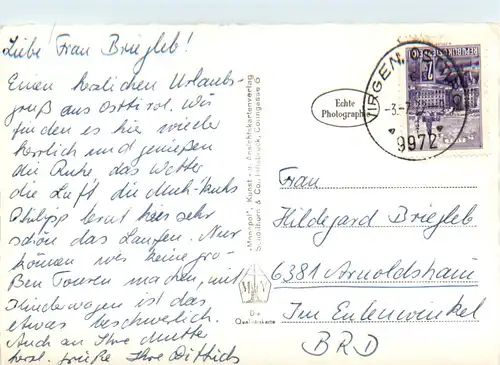 Liebe Frau Briegleb!
Einen herzlichen Urlaubs-
gruß aus Osttirol. Wir
finden es hier wieder
herrlich und genießen
die Ruhe, das Wetter
die Luft, die Milch-Kuhs
Philipp lernt hier sehr
schön das Laufen. Nur
können wir keine gro-
ßen Touren machen, mit
Kinderwagen ist das
etwas beschwerlich.
Auch an Ihre Mutter
herzl. Grüße Ihre Dittrichs
"Monopol", Kunst- u. Ansichtskartenverlag
Schöllhorn & Co., Innsbruck, Colingasse
Die
Qualitätskarte
Echte
Photographie
VIRGEN, OSTTIROL
9972
REPUBLIK ÖSTERREICH
Frau
Hildegard Briegleb
6381 Arnoldshain
Im Eulenwinkel
BRD